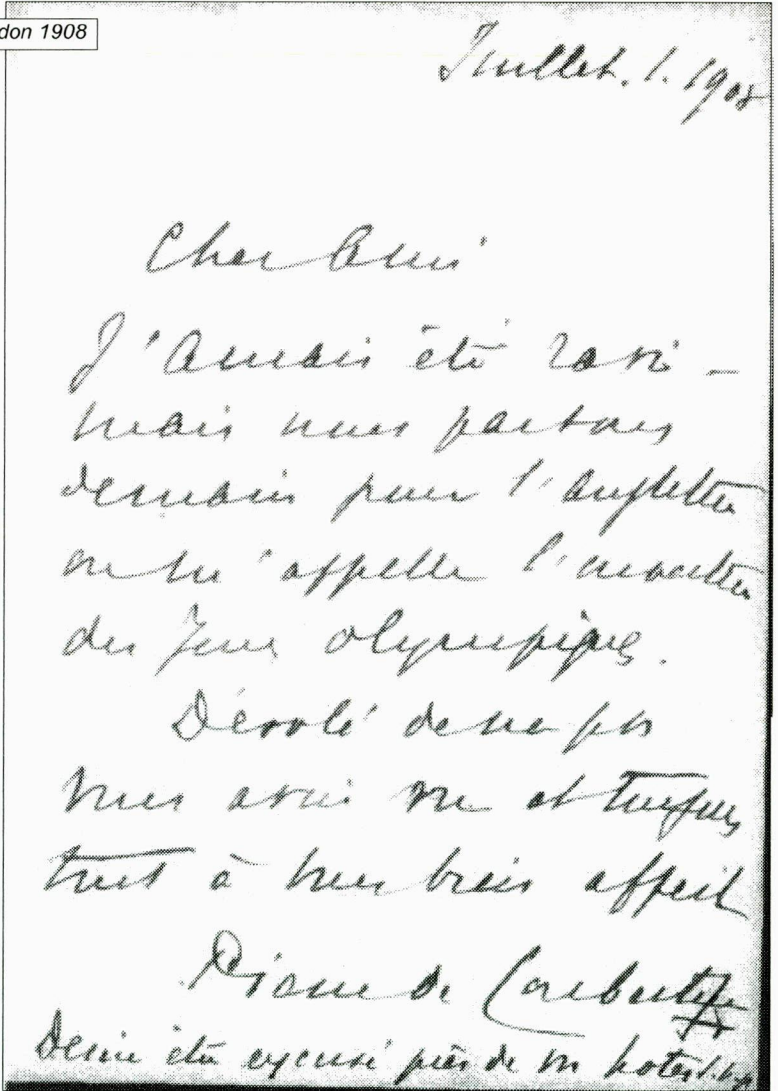 don 1908
Juillet. 1. 1908
Cher Ami
J'aurais été ravi -
mais nous partons
demain pour l'Angleterre
où m'appelle l'ouverture
des Jeux olympiques.
Désolé de ne pas
vous avoir vu et toujours
tout à vous bien affect
Pierre de Coubertin
été excusé près de vos hotes